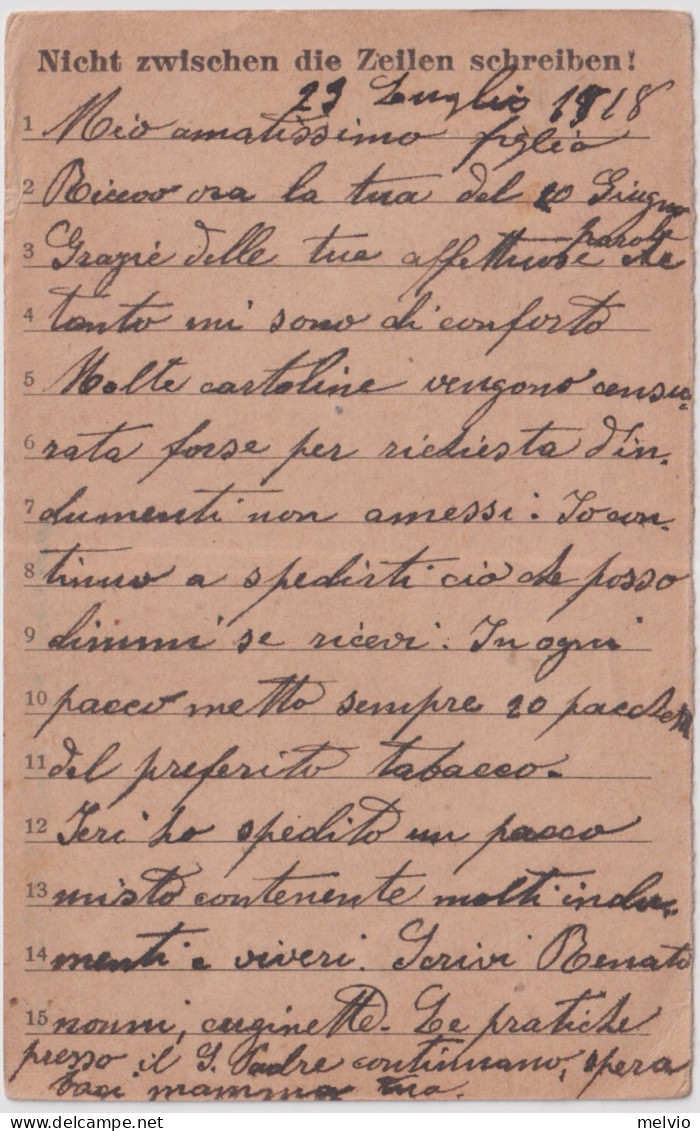 Nicht zwischen die Zeilen schreiben!
23 Luglio 1918
1 Mio amatissimo figlio
2 Ricevo ora la tua del 20 Giugno
parole
3 Grazie delle tue affettuose che
4 tanto mi sono di conforto
5 Molte cartoline vengono censu-
6 rata forse per richiesta d'in-
7 dumenti non amessi. Io con-
8 tinuo a spedirti ciò che posso
9 dimmi se ricevi. In ogni
10 pacco metto sempre 20 pacchetti
11 del preferito tabacco.
12 Ieri ho spedito un pacco
13 misto contenente molti indu-
14 menti e viveri. Scrivi Renato
15 nonni, cuginette. Le pratiche
presso il S. Padre continuano, spera
baci mamma tua.
www.delcampe.net
melvio